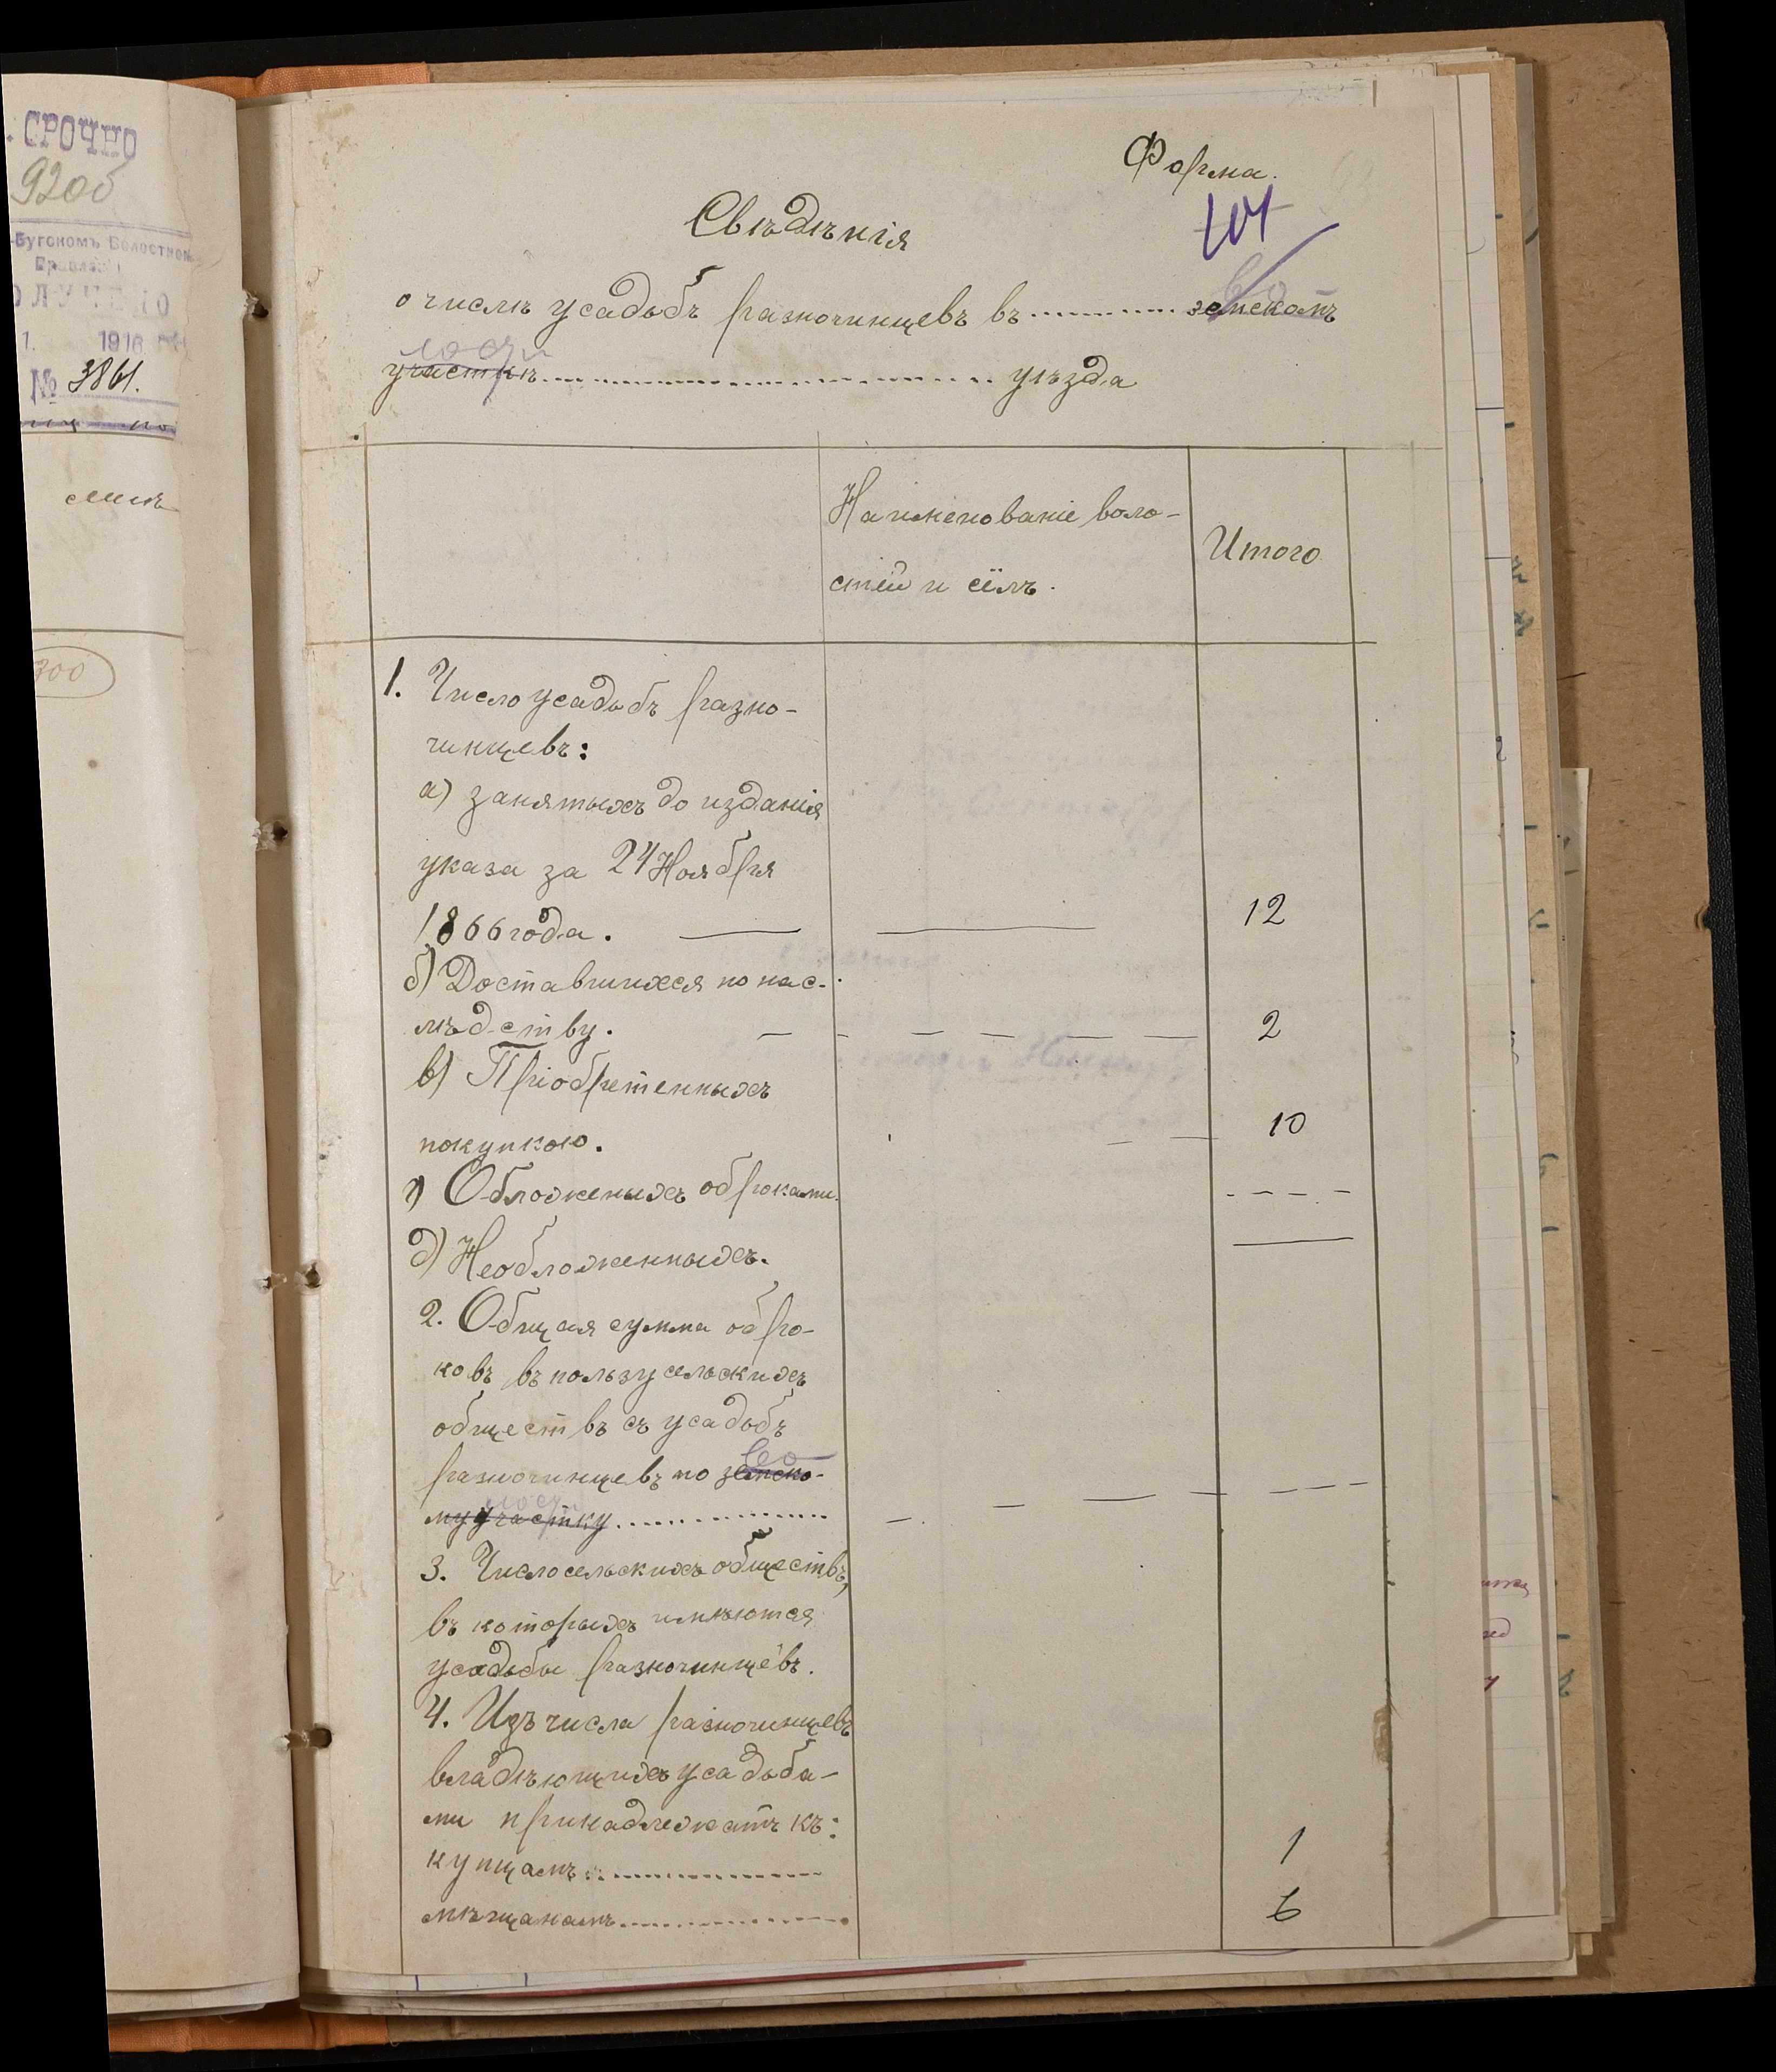 СРОЧНО
9206
-Бугскомъ Волостном
Правлен
ПОЛУЧЕНО
1916
№ 3861.
300
Форма.
101
Свѣдѣнія
во
о числѣ усадьбъ разночинцевъ въ ............ земскомъ
лости
участкѣ .............................. уѣзда
Наименованіе воло-
стей и сёлъ.
Итого
1. Число усадьбъ разно-
чинцевъ:
а) занятыхъ до изданія
указа за 24 Ноября
1866 года. — — 12
б) Доставшихся по нас-
лѣдству. — — — — — — 2
в) Пріобретенныхъ
покупкою. — — 10
г) Обложеныхъ оброками. - - - -
д) Необложенныхъ. —
2. Общая сумма обро-
ковъ въ пользу сельскихъ
обществъ съ усадьбъ
во
разночинцевъ по земско-
лости
му участку ............... — — — — — — —
3. Число сельскихъ обществъ,
въ которыхъ имѣются
усадьбы разночинцевъ.
4. Изъ числа разночинцевъ
владѣющихъ усадьба-
ми принадлежатъ къ:
купцамъ ............... 1
мѣщанамъ ............... 6